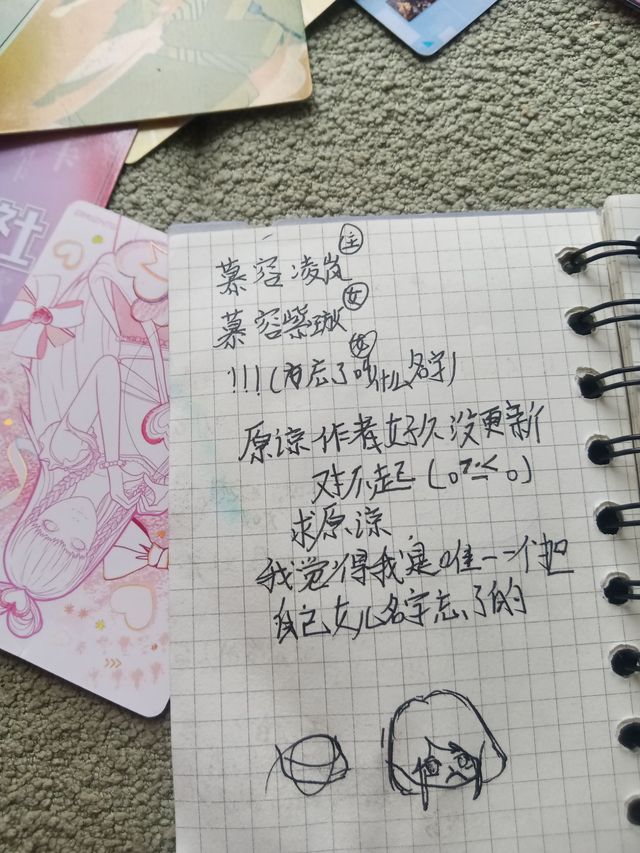 社
慕容凌岚 主
慕容紫璈 女
!!!(有忘了叫什么名字)
原谅作者好久没更新
对不起(。≥≤。)
求原谅
我觉得我是唯一一个把
自己女儿名字忘了的